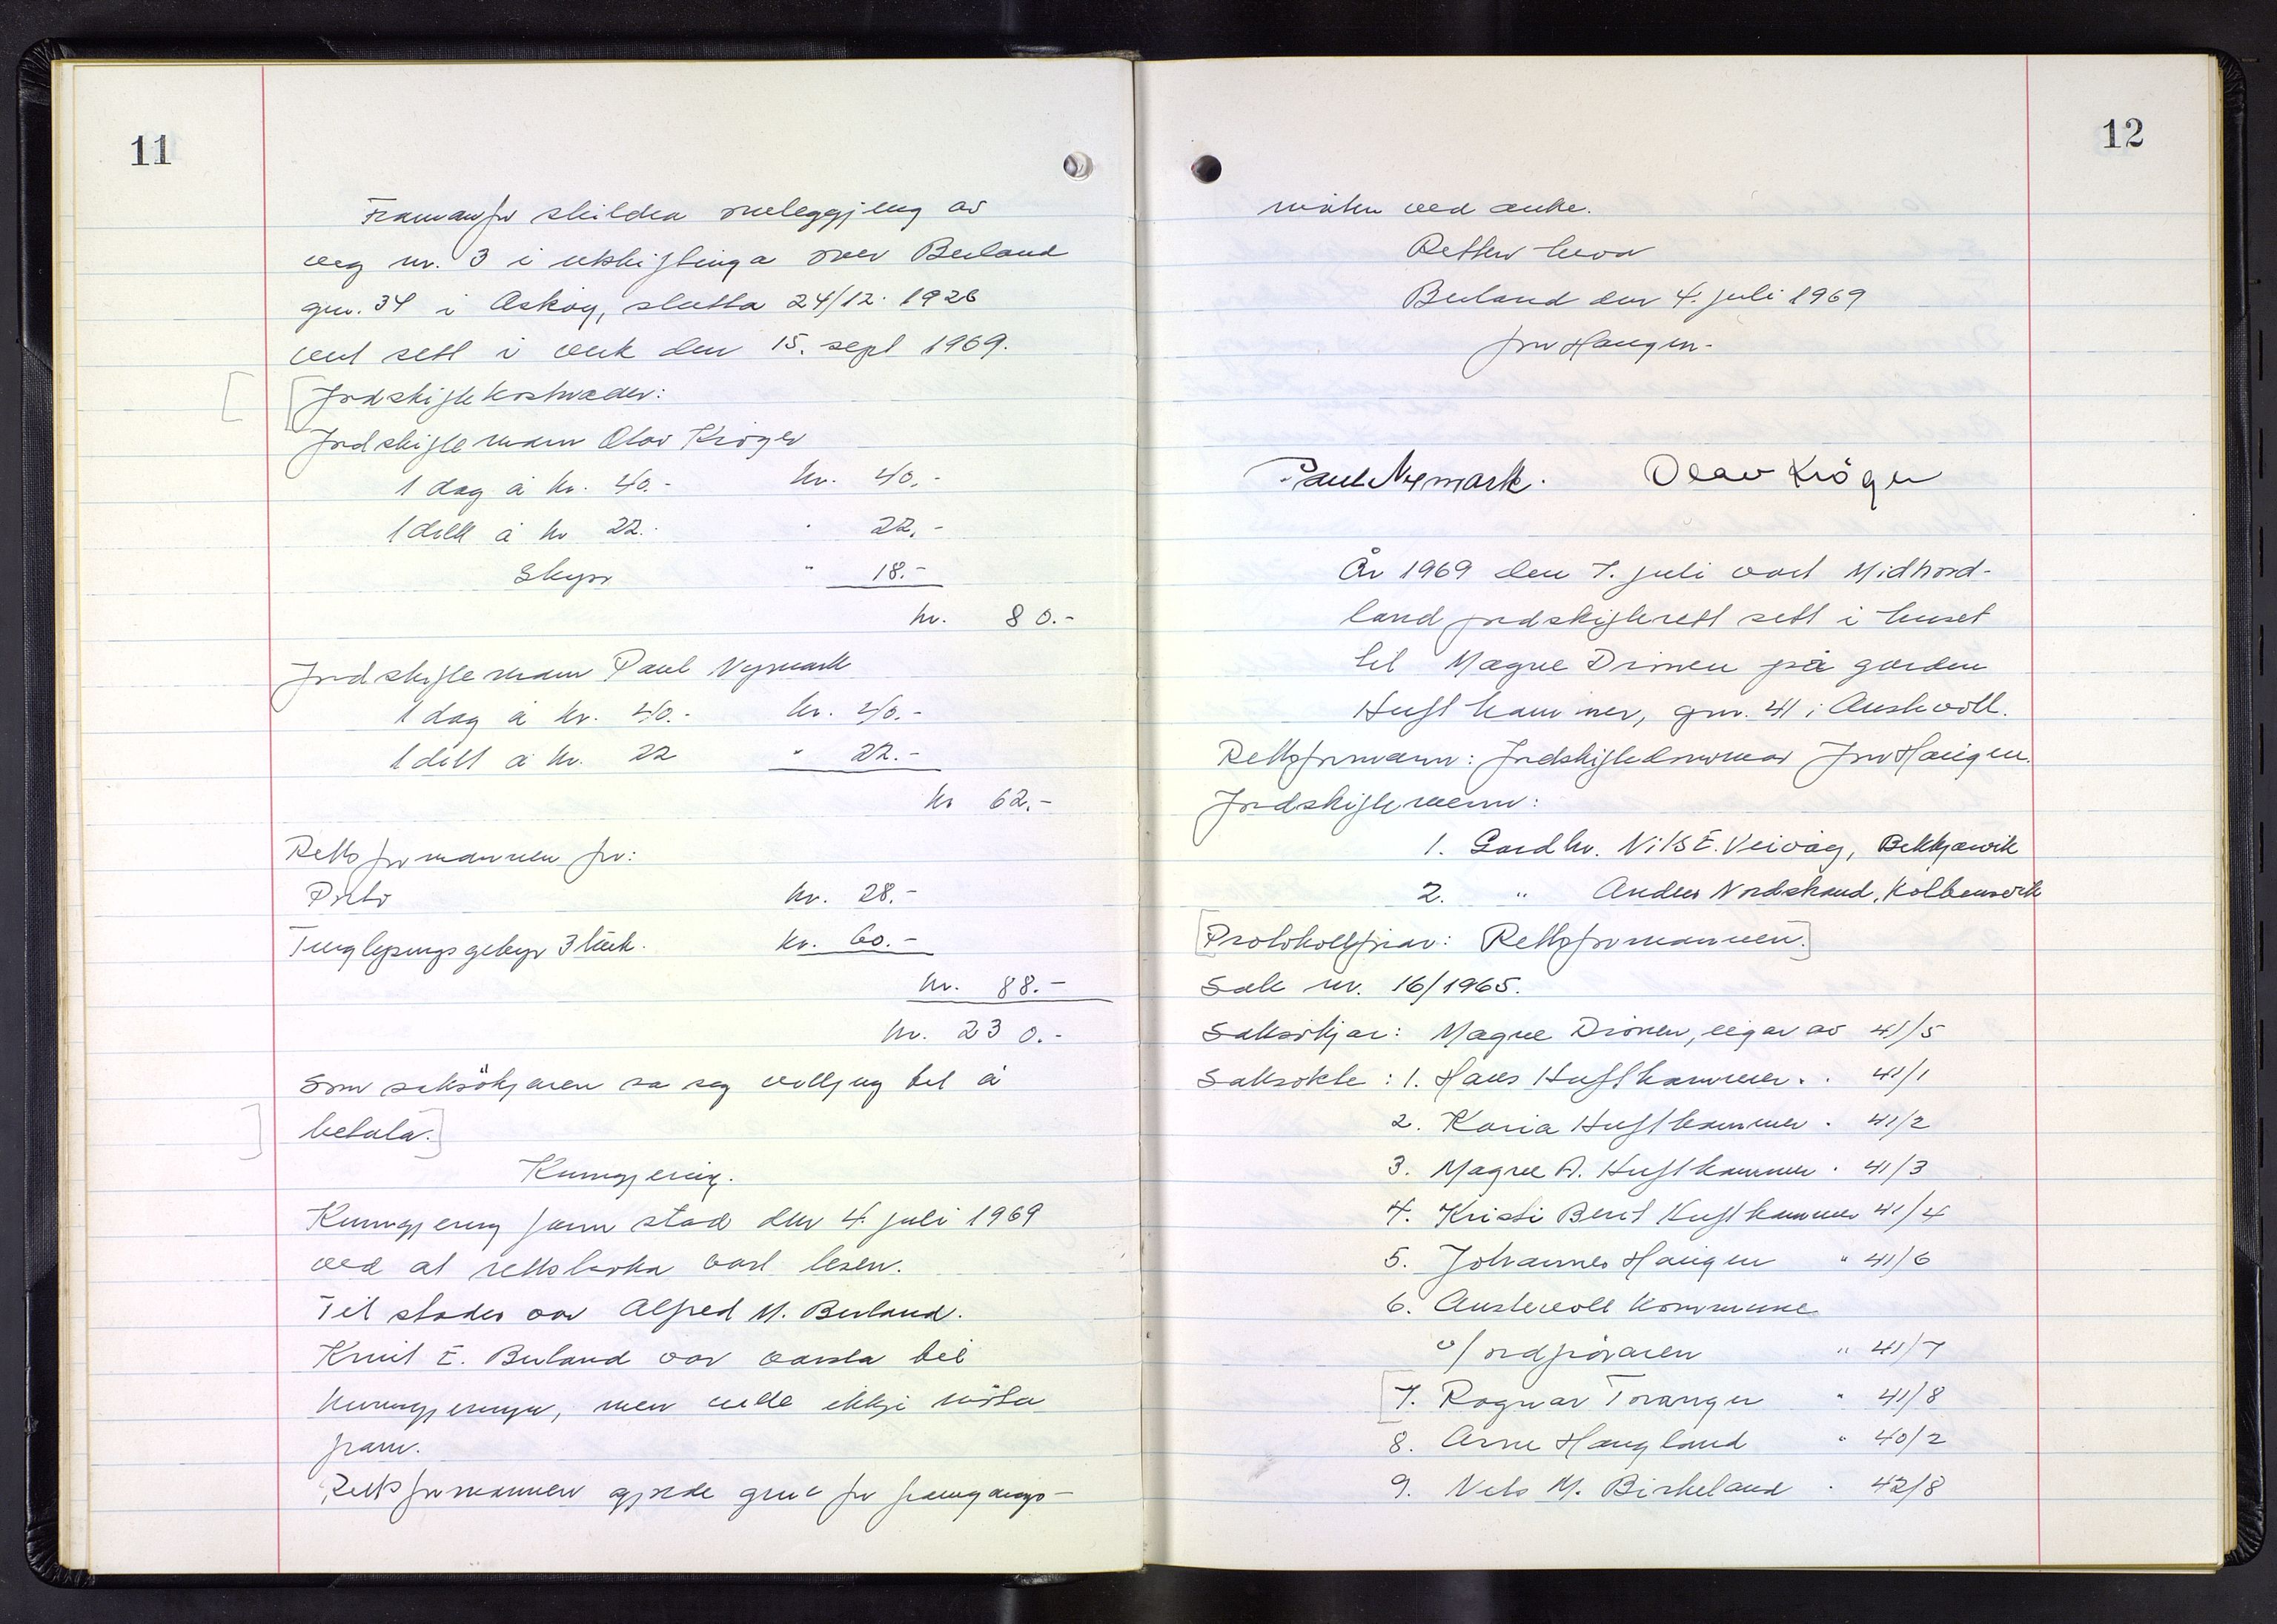 11
Framanfor skildra omleggjing av
veg nr. 3 i utskiftinga over Berland
gnr. 34 i Askøy, slutta 24/12. 1926
vert sett i verk den 15. sept 1969.
Jordskiftekostnader:
Jordskiftemann Olav Krøger
1 dag à kr. 40.- kr. 40.-
1 diett à kr 22.- " 22.-
Skyss " 18.-
kr. 80.-
Jordskiftemann Paul Nymark
1 dag à kr. 40.- kr. 40.-
1 diett à kr. 22 " 22.-
kr 62.-
Rettsformannen for:
Porto kr. 28.-
Tinglysingsgebyr 3 bruk. kr. 60.-
kr. 88.-
kr. 230.-
Som saksökjaren sa seg velljug til å
betala.
Kunngjering.
Kunngjering fann stad den 4. juli 1969
ved at rettsboka vart lesen.
Til stades var Alfred M. Berland.
Knut E. Berland var varsla til
kunngjeringa, men ville ikkje møta
fram.
Rettsformannen gjorde greie for framgangs-
12
måten ved anke.
Retten heva
Berland den 4. juli 1969
Jon Haugen.
Paul Nymark. Olav Kröger
År 1969 den 7. juli vart Midhord-
land jordskifterett sett i huset
til Magne Drønen på garden
Hufthammer, gnr. 41 i Austevoll.
Rettsformann: Jordskiftedommar Jon Haugen.
Jordskiftemenn:
1. Gardbr. Nils E. Veivåg, Bekkjarvik
2. " Anders Nordstrand, Kolbeinsvik
Protokollførar: Rettsformannen.
Sak nr. 16/1965.
Saksøkjar: Magne Drönen, eigar av 41/5
Saksøkte: 1. Hans Hufthammer . . 41/1
2. Karia Hufthammer . 41/2
3. Magne A. Hufthammer . 41/3
4. Kristi Berit Hufthammer 41/4
5. Johannes Haugen " 41/6
6. Austevoll kommune
v/ordføraren " 41/7
7. Ragnar Toranger " 41/8
8. Arne Haugland " 40/2
9. Nils M. Birkeland . 42/8